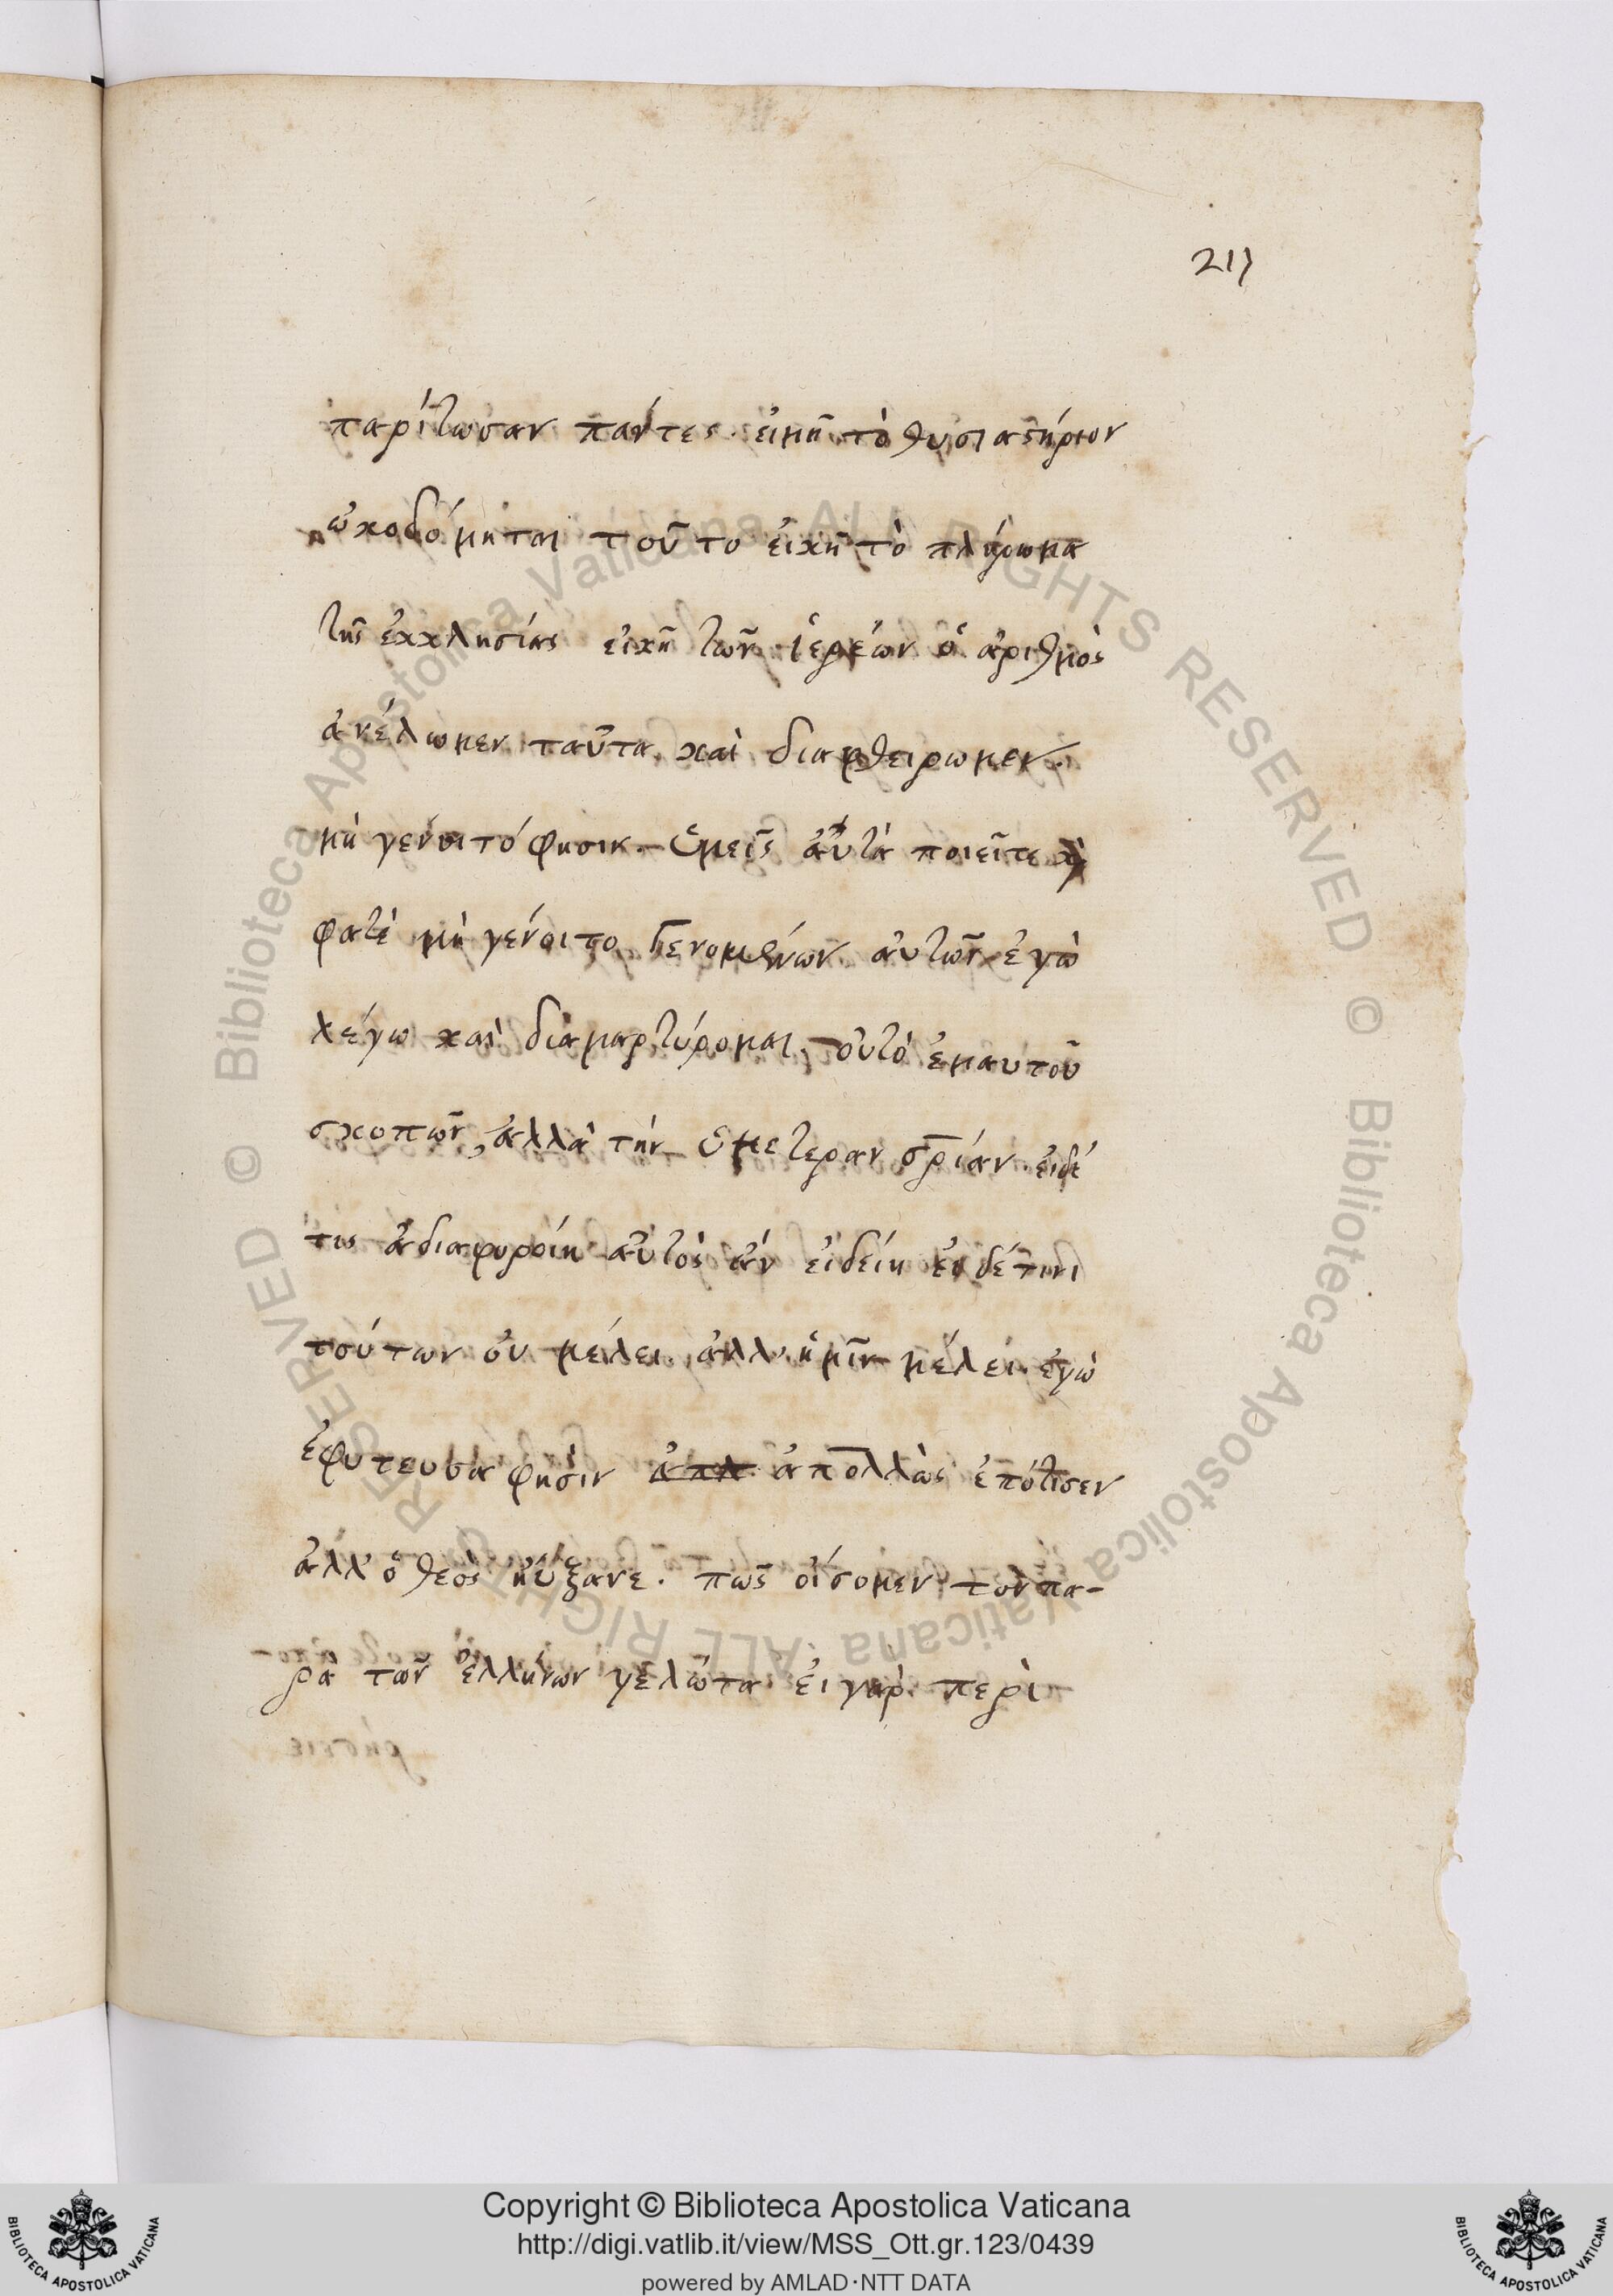 211
παρίτωσαν πάντες. εἰκῆ τὸ θυσιαστήριον
ᾠκοδόμηται τοῦτο εἰκῆ τὸ πλήρωμα
τῆς ἐκκλησίας εἰκῆ τῶν ἱερέων ὁ ἀριθμὸς
ἀνέλωμεν ταῦτα καὶ διαφθείρωμεν.
μὴ γένοιτό φησιν. ὑμεῖς αὐτὰ ποιεῖτε καὶ
φατὲ μὴ γένοιτο γενομένων αὐτῶν ἐγὼ
λέγω καὶ διαμαρτύρομαι. οὐ τὸ ἐμαυτοῦ
σκοπῶν, ἀλλὰ τὴν ὑμετέραν σρίαν. εἰδέ
τις ἀδιαφοροίη αὐτὸς ἂν εἰδείη εἰ δέ τινι
τούτων οὐ μέλει ἀλλ' ἡμῖν μέλει. ἐγὼ
ἐφύτευσα φησὶν ἀπολλὼς ἐπότισεν
ἀλλ' ὁ θεὸς ηὔξανε. πῶς οἴσομεν τὸν πα-
ρὰ τῶν ἑλλήνων γέλωτα εἰ γὰρ περὶ
© Biblioteca Apostolica Vaticana ALL RIGHTS RESERVED © Biblioteca Apostolica Vaticana ALL RIGHTS RESERVED
Copyright © Biblioteca Apostolica Vaticana
http://digi.vatlib.it/view/MSS_Ott.gr.123/0439
powered by AMLAD·NTT DATA
BIBLIOTECA APOSTOLICA VATICANA
BIBLIOTECA APOSTOLICA VATICANA